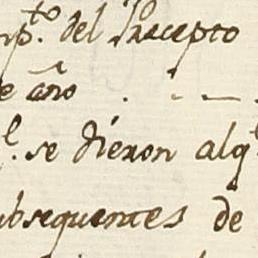 mp.to del Precepto
e año . . — .
l. se dieron alg.
ubsequentes de